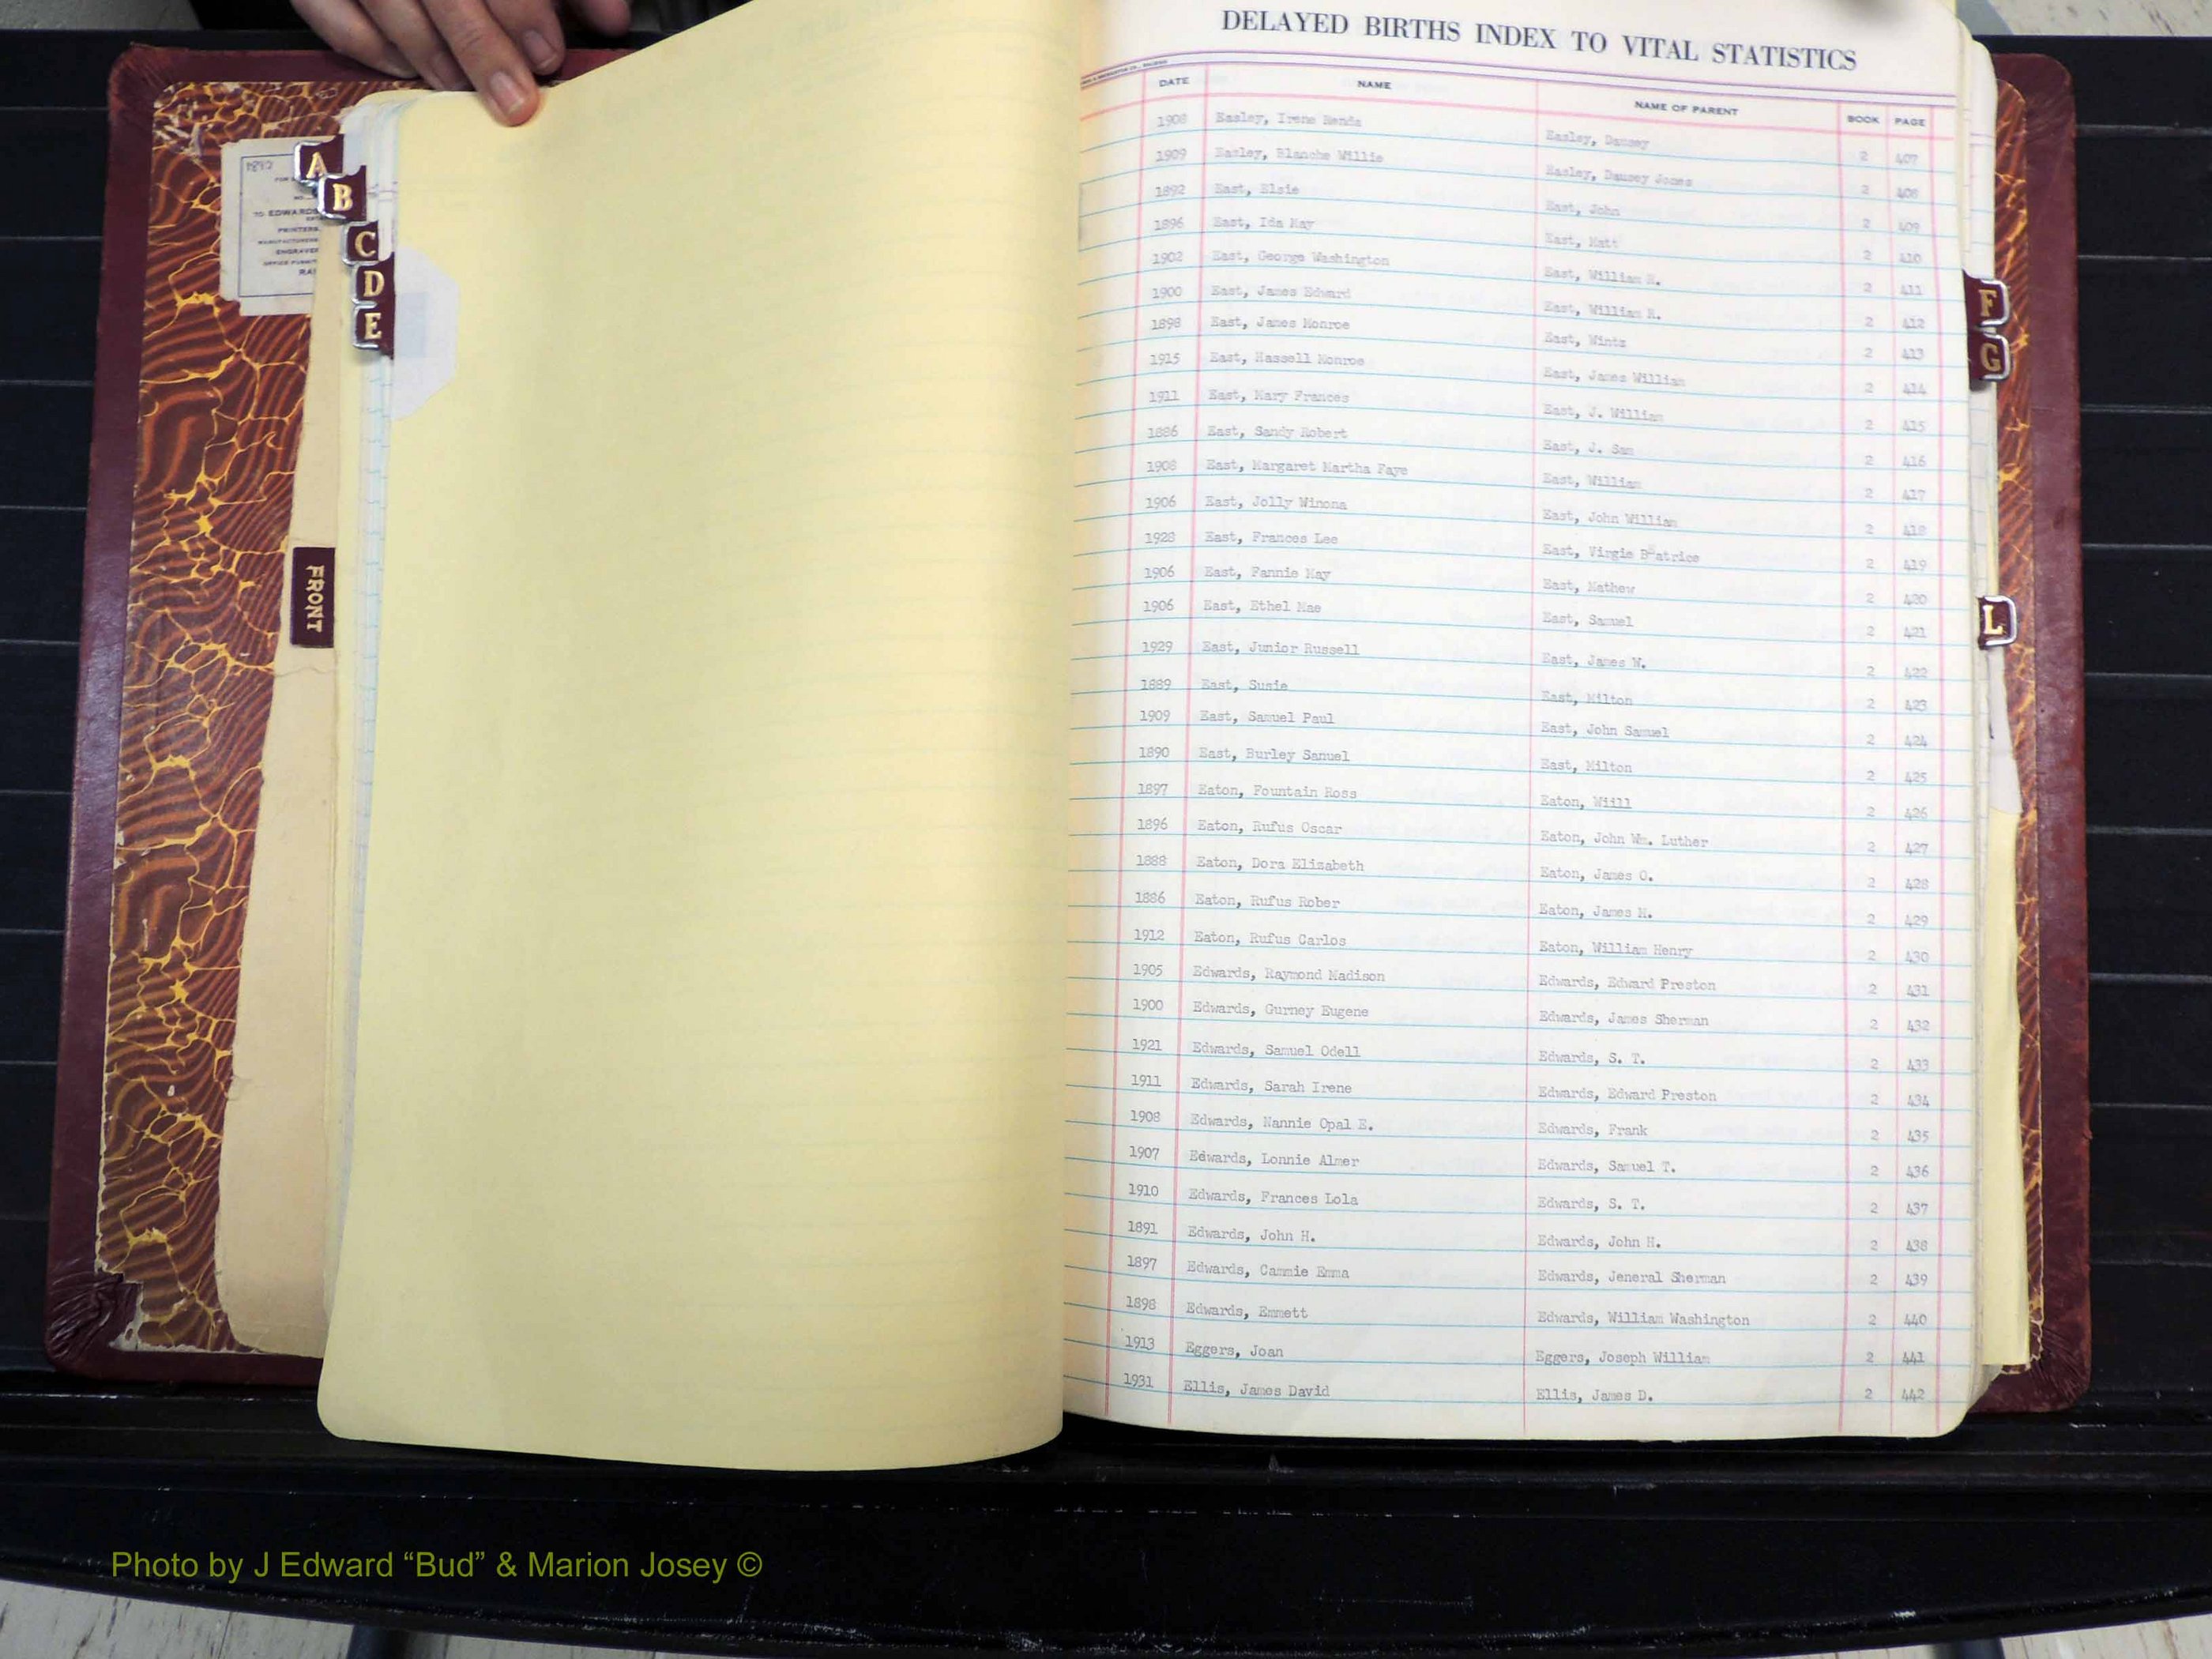 A
B
C
D
E
TO EDWARDS
PRINTERS
ENGRAVE
FRONT
DELAYED BIRTHS INDEX TO VITAL STATISTICS
DATE NAME NAME OF PARENT BOOK PAGE
1908 Easley, Irene Renda Easley, Dausey 2 407
1909 Easley, Blanche Willie Easley, Dausey Jones 2 408
1892 East, Elsie East, John 2 409
1896 East, Ida May East, Matt 2 410
1902 East, George Washington East, William R. 2 411
1900 East, James Edward East, William R. 2 412
1898 East, James Monroe East, Wintz 2 413
1915 East, Hassell Monroe East, James William 2 414
1911 East, Mary Frances East, J. William 2 415
1886 East, Sandy Robert East, J. Sam 2 416
1908 East, Margaret Martha Faye East, William 2 417
1906 East, Jolly Winona East, John William 2 418
1928 East, Frances Lee East, Virgie Beatrice 2 419
1906 East, Fannie May East, Mathew 2 420
1906 East, Ethel Mae East, Samuel 2 421
1929 East, Junior Russell East, James W. 2 422
1889 East, Susie East, Milton 2 423
1909 East, Samuel Paul East, John Samuel 2 424
1890 East, Burley Samuel East, Milton 2 425
1897 Eaton, Fountain Ross Eaton, Wiill 2 426
1896 Eaton, Rufus Oscar Eaton, John Wm. Luther 2 427
1888 Eaton, Dora Elizabeth Eaton, James O. 2 428
1886 Eaton, Rufus Rober Eaton, James M. 2 429
1912 Eaton, Rufus Carlos Eaton, William Henry 2 430
1905 Edwards, Raymond Madison Edwards, Edward Preston 2 431
1900 Edwards, Gurney Eugene Edwards, James Sherman 2 432
1921 Edwards, Samuel Odell Edwards, S. T. 2 433
1911 Edwards, Sarah Irene Edwards, Edward Preston 2 434
1908 Edwards, Nannie Opal E. Edwards, Frank 2 435
1907 Edwards, Lonnie Almer Edwards, Samuel T. 2 436
1910 Edwards, Frances Lola Edwards, S. T. 2 437
1891 Edwards, John H. Edwards, John H. 2 438
1897 Edwards, Cammie Emma Edwards, Jeneral Sherman 2 439
1898 Edwards, Emmett Edwards, William Washington 2 440
1913 Eggers, Joan Eggers, Joseph William 2 441
1931 Ellis, James David Ellis, James D. 2 442
F
G
L
Photo by J Edward “Bud” & Marion Josey ©